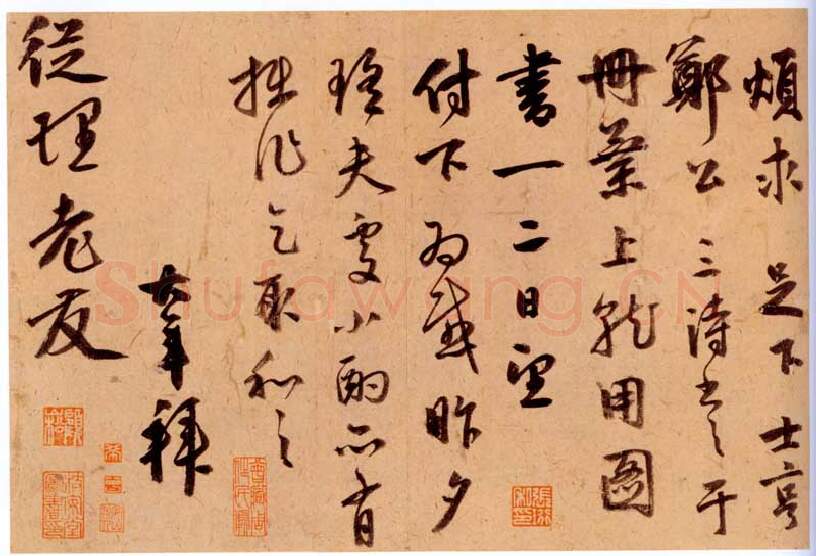 煩求足下士亨
鄭公三詩書于
冊葉上就用圖
書一二日望
付下為感昨夕
夫處小酌所有
拙作乞取和之
大年拜
從理老友
Shufawang.CN